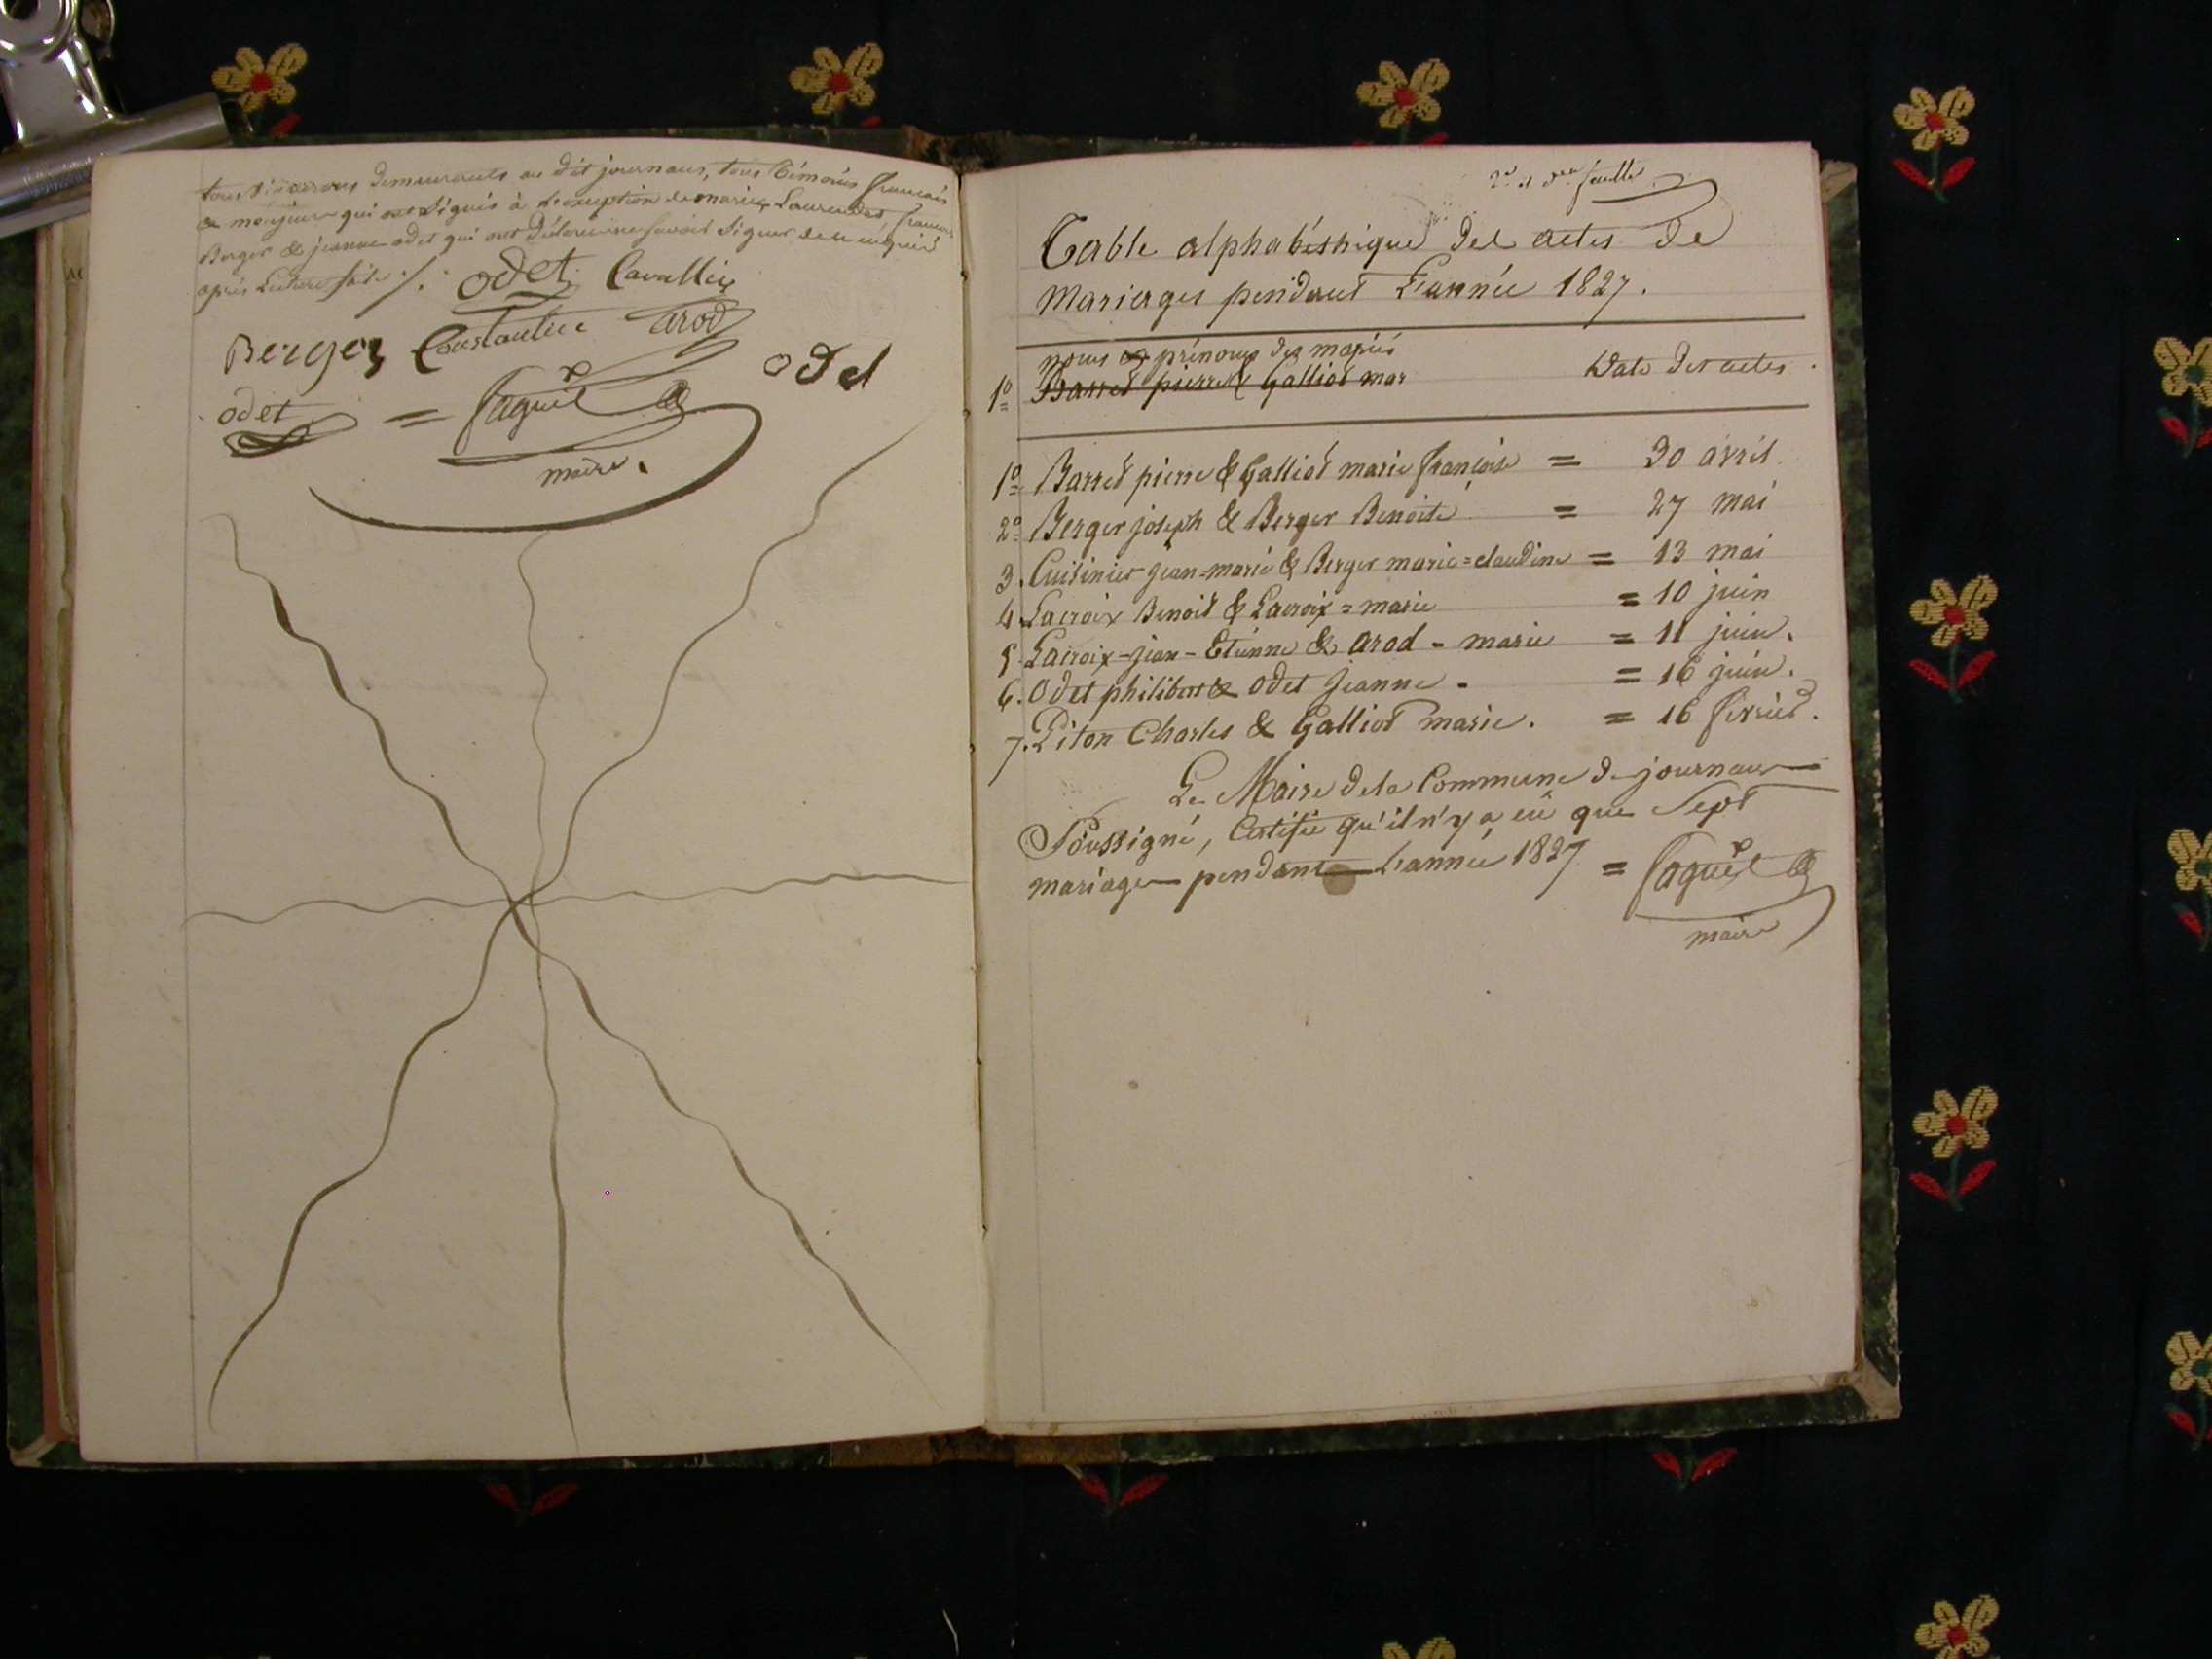 tous demeurants au dit journaux, tous témoins français
& majeurs qui ont signés à l'exception de marie françois
Berger & jeanne odet qui ont déclaré ne savoir signer de ce enquis
après lecture faite ./.
odet Cavallier
Berger Constantin arod
odet
odet = faguet
maire.
2e et der feuille
Table alphabéthique des actes de
Mariages pendant L'année 1827.
noms & prénoms des mariés
Date des actes.
1º Barret pierre & Galliot mar
1º Barret pierre & Galliot marie françoise = 30 avril
2º Berger joseph & Berger Benoite = 27 mai
3. Cuisinier jean=marie & Berger marie=claudine = 13 mai
4. Lacroix Benoit & Lacroix = marie = 10 juin
5. Lacroix-jean-Etienne & arod - marie = 11 juin.
6. Odet philibert & odet jeanne - = 16 juin.
7. Piton Charles & Galliot marie. = 16 févrièr.
Le Maire de la Commune de journaux
Poussigné, Certifie qu'il n'y a eû que Sept
mariages pendant L'année 1827 = faguet
maire